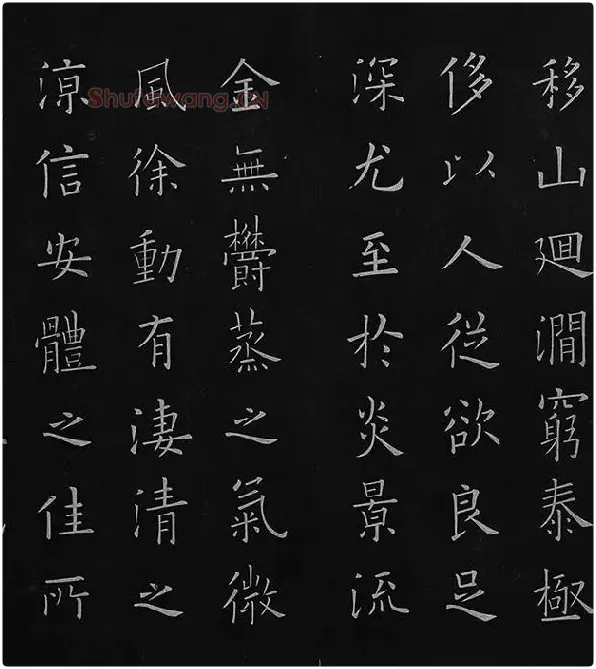 移山廻澗窮泰極
侈以人從欲良足
深尤至於炎景流
金無欝蒸之氣微
風徐動有淒清之
涼信安體之佳所
Shufawang.CN